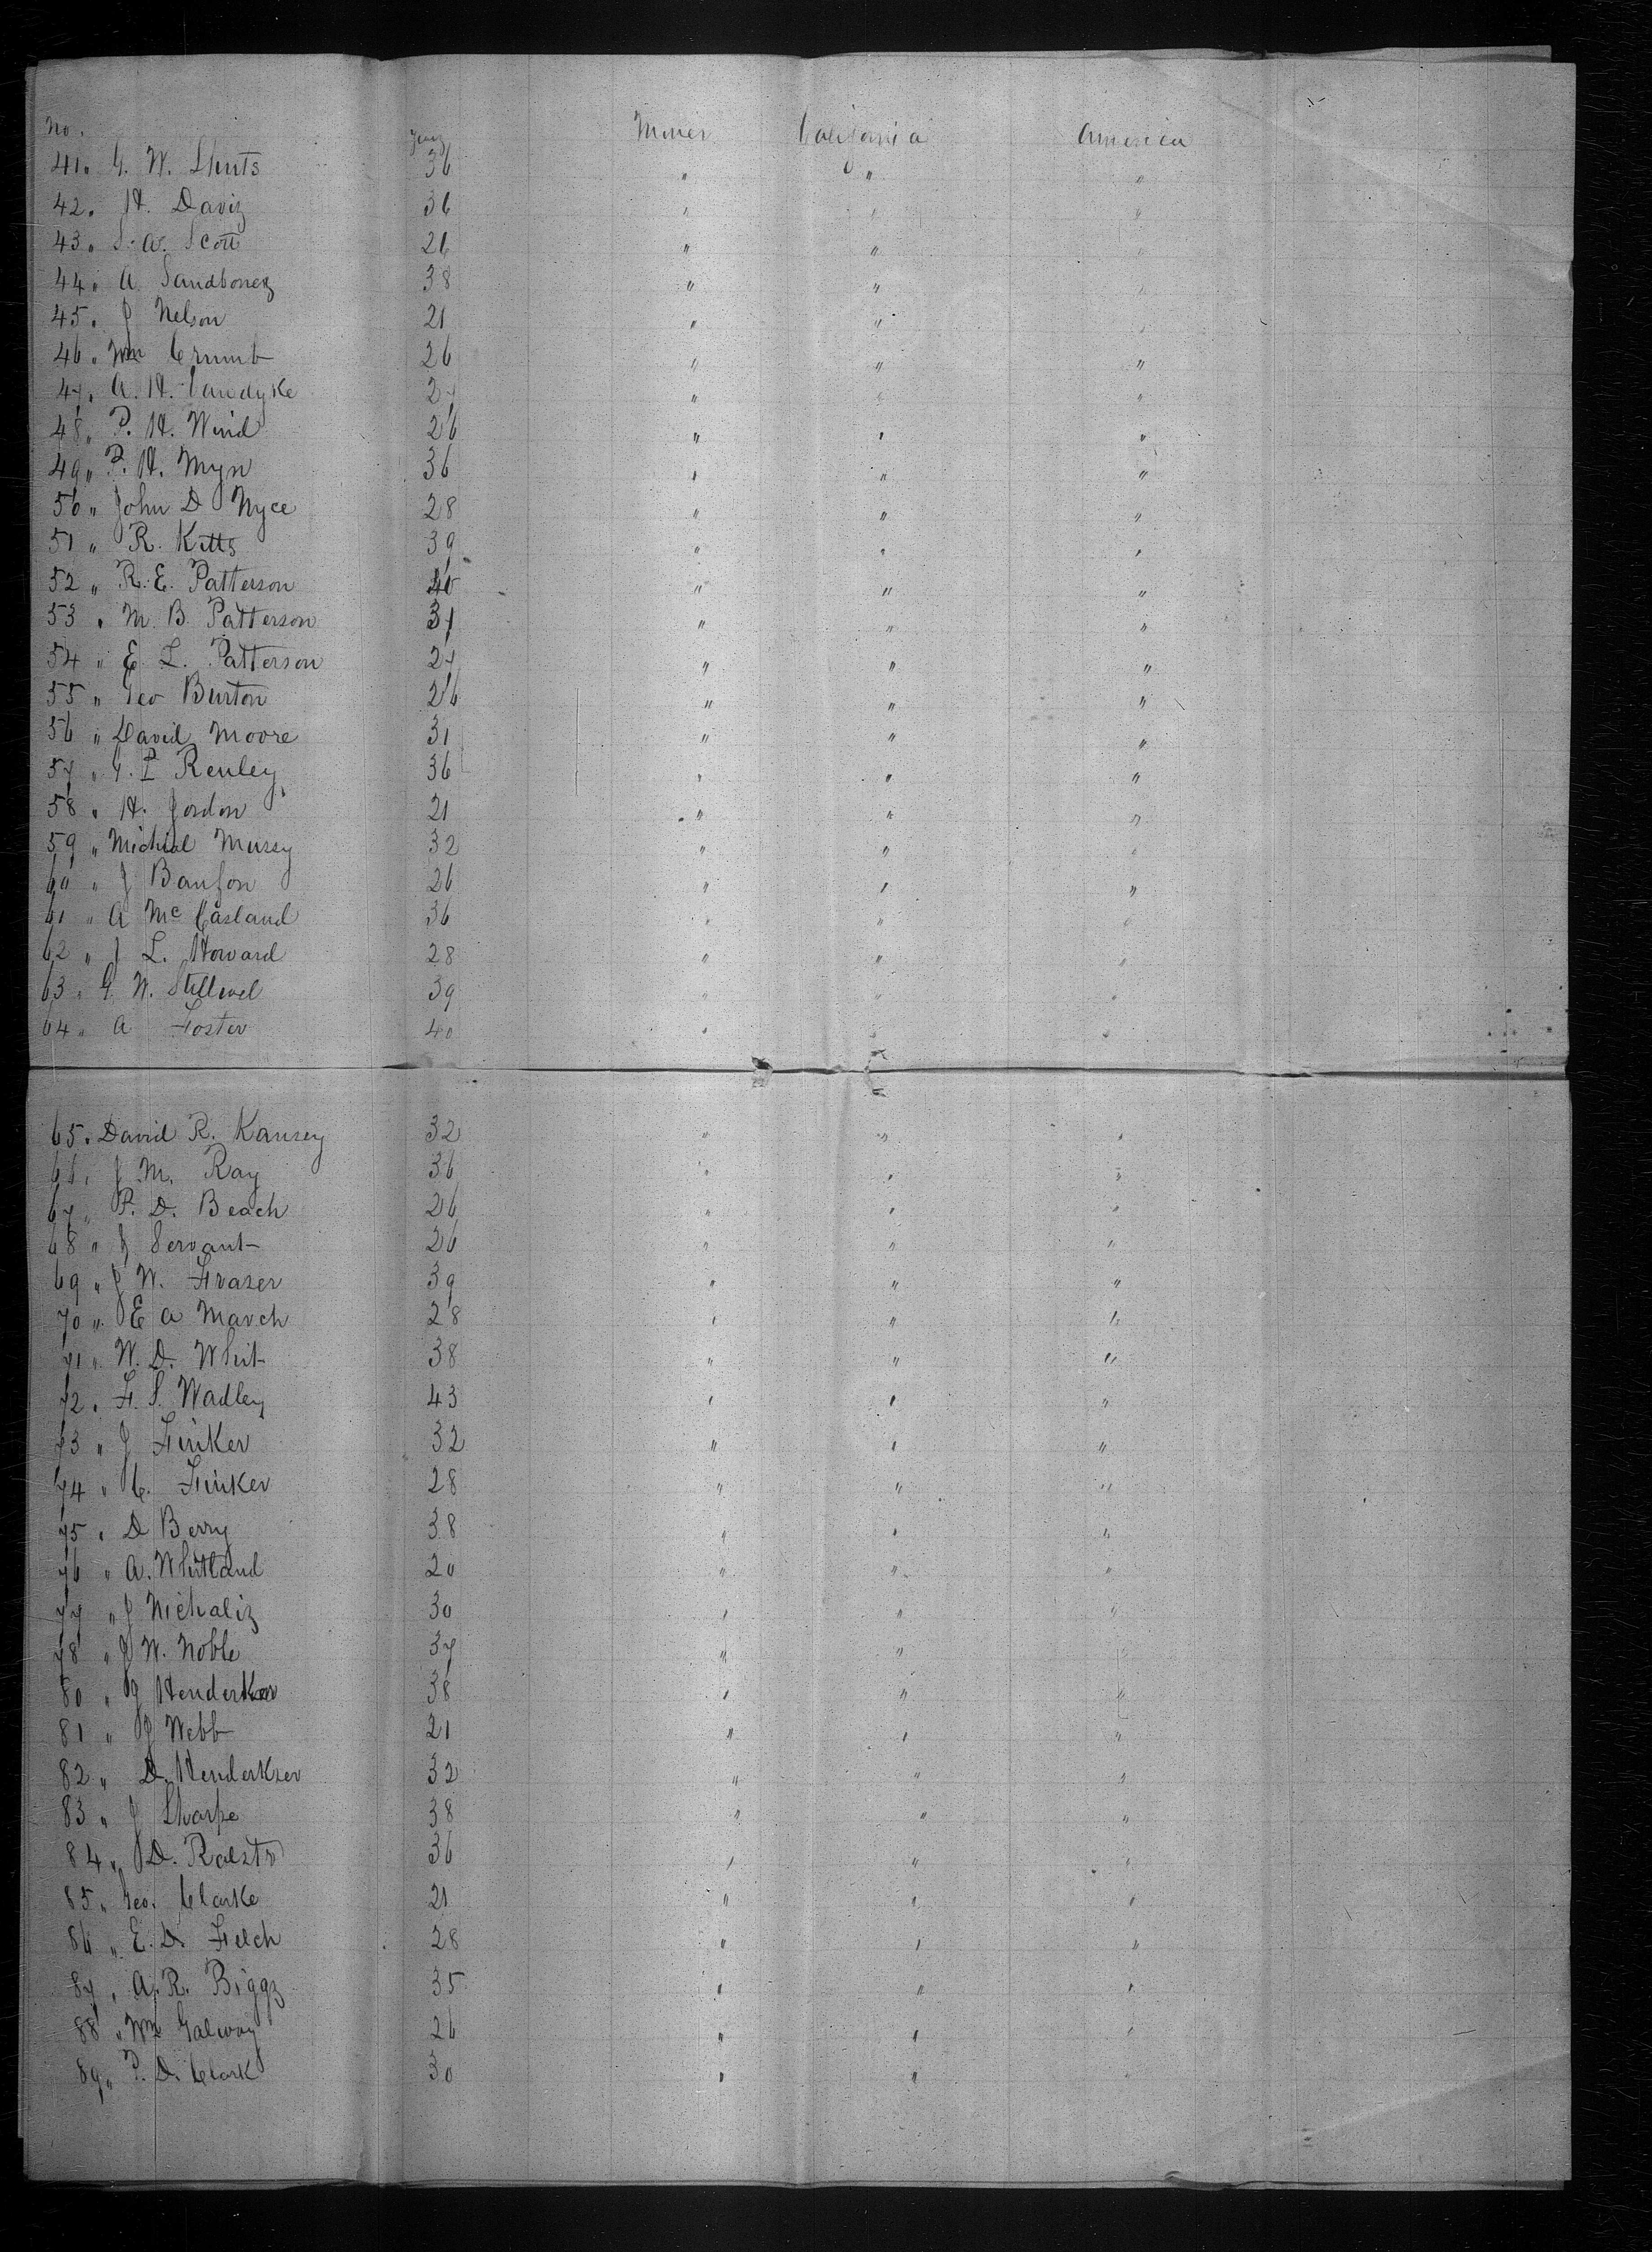 No. Miner California America
41. G. W. Shuts 36 " " "
42. H. Daviz 36 " " "
43. S. A. Scott 26 " " "
44. A Sandbonez 38 " " "
45. J Nelson 21 " " "
46. Wm Crumb 26 " " "
47. A. H. Vandyke 27 " " "
48. P. H. Wind 26 " " "
49. P. H. Myn 36 " " "
50 " John D Nyce 28 " " "
51 " R. Kitts 39 " " "
52 " R. E. Patterson " " "
53 " M. B. Patterson 37 " " "
54 " E. L. Patterson 27 " " "
55 " Geo Burton 26 " " "
56 " David Moore 31 " " "
57 " G. P Renley 36 " " "
58 " H. Jordon 21 " " "
59 " Michial Mursy 32 " " "
60 " J Banfon 26 " " "
61 " A McCasland 36 " " "
62 " J L. Howard 28 " " "
63 " G. W. Stillwel 39 " " "
64 " A Foster 40 " " "
65. David R. Kansey 32 " " "
66. J M. Ray 36 " " "
67 " P. D. Beach 26 " " "
68 " J Servant 26 " " "
69 " J W. Frazer 39 " " "
70 " E A March 28 " " "
71 " W. D. Whit 38 " " "
72. F. S. Wadley 43 " " "
73 " J Finker 32 " " "
74 " C. Finker 28 " " "
75 " D Berry 38 " " "
76 " A. Whitland 20 " " "
77 " J Nichaliz 30 " " "
78 " J W. Noble 37 " " "
80 " J 38 " " "
81 " J Webb 21 " " "
82 " D. Henderkser 32 " " "
83 " J Sharpe 38 " " "
84 " D. Ralsto 36 " " "
85 " Geo. Clarke 21 " " "
86 " E. D. Felch 28 " " "
87 " A. R. Biggz 35 " " "
88 " Wm Galway 26 " " "
89 " P. D. Clark 30 " " "